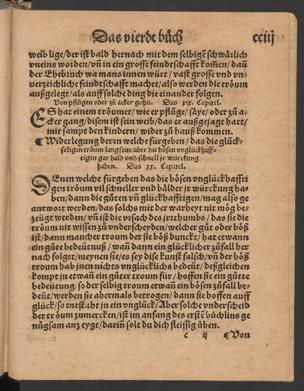 Das vierdt bůch cciij
weib lige/der ist bald hernach mit dem selbigẽ schwärlich
vneins woꝛden/vñ in ein grosse feindschafft kom̃en/dañ
der Ehebꝛuch wa mans innen würt/vast grosse vnd vn-
verzeichliche feindtschafft machet/also werden die tröum
außgelegt/als aufft solche ding die einander folgen.
Von pflügen oder zů acker gohn. Das xix. Capitel.
ES hat einem tröumet/wie er pflüge/säye/oder zů a-
cker gang/disem ist sein weib/das er außgejagt hatt/
mit sampt den kindern/wider zů hauß kommen.
¶ Widerlegung deren welche fürgeben/das die glück-
seligen tröum langsam/aber die bösen vnglückhaff-
tigen gar bald vnd schnell jr würckung
haben. Das xx. Capitel.
DEnen welche fürgeben das die bösen vnglückhaffti
gen tröum vil schneller vnd bälder jr würckung ha-
ben/dann die gůten vñ glückhafftigen/mag also ge
antwoꝛt werden/das solchs mit der warheyt nir mög be-
zeügt werden/vñ ist die vꝛsach des jrꝛthumbs/das sie die
tröum nit wissen zů vnderscheyden/welcher gůt oder böß
ist/dann mancher troum der ist böß dunckt/hat er wann
ein gůte bedeütnuß/wañ dann ein glücklicher zůfall her
nach folget/meynen sie/es sey dise kunst falsch/vñ der böß
troum hab jnen nichts vnglücklichs bedeüt/deßgleichen
kompt jn etwañ ein gůter troum für/hoffen sie ein gůte
bedeütung/so der selbig troum etwañ ein bösen zůfall be-
deüt/werden sie abermals betrogen/dann sie hoffen auff
glück/so entstaht jn ein vnglück/Aber solche vnderscheit
der tröum zůmercken/ist im anfang des erstẽ bůchlins ge
nůgsam anzeygt/darin solt du dich fleissig üben.
c ij ¶ Von